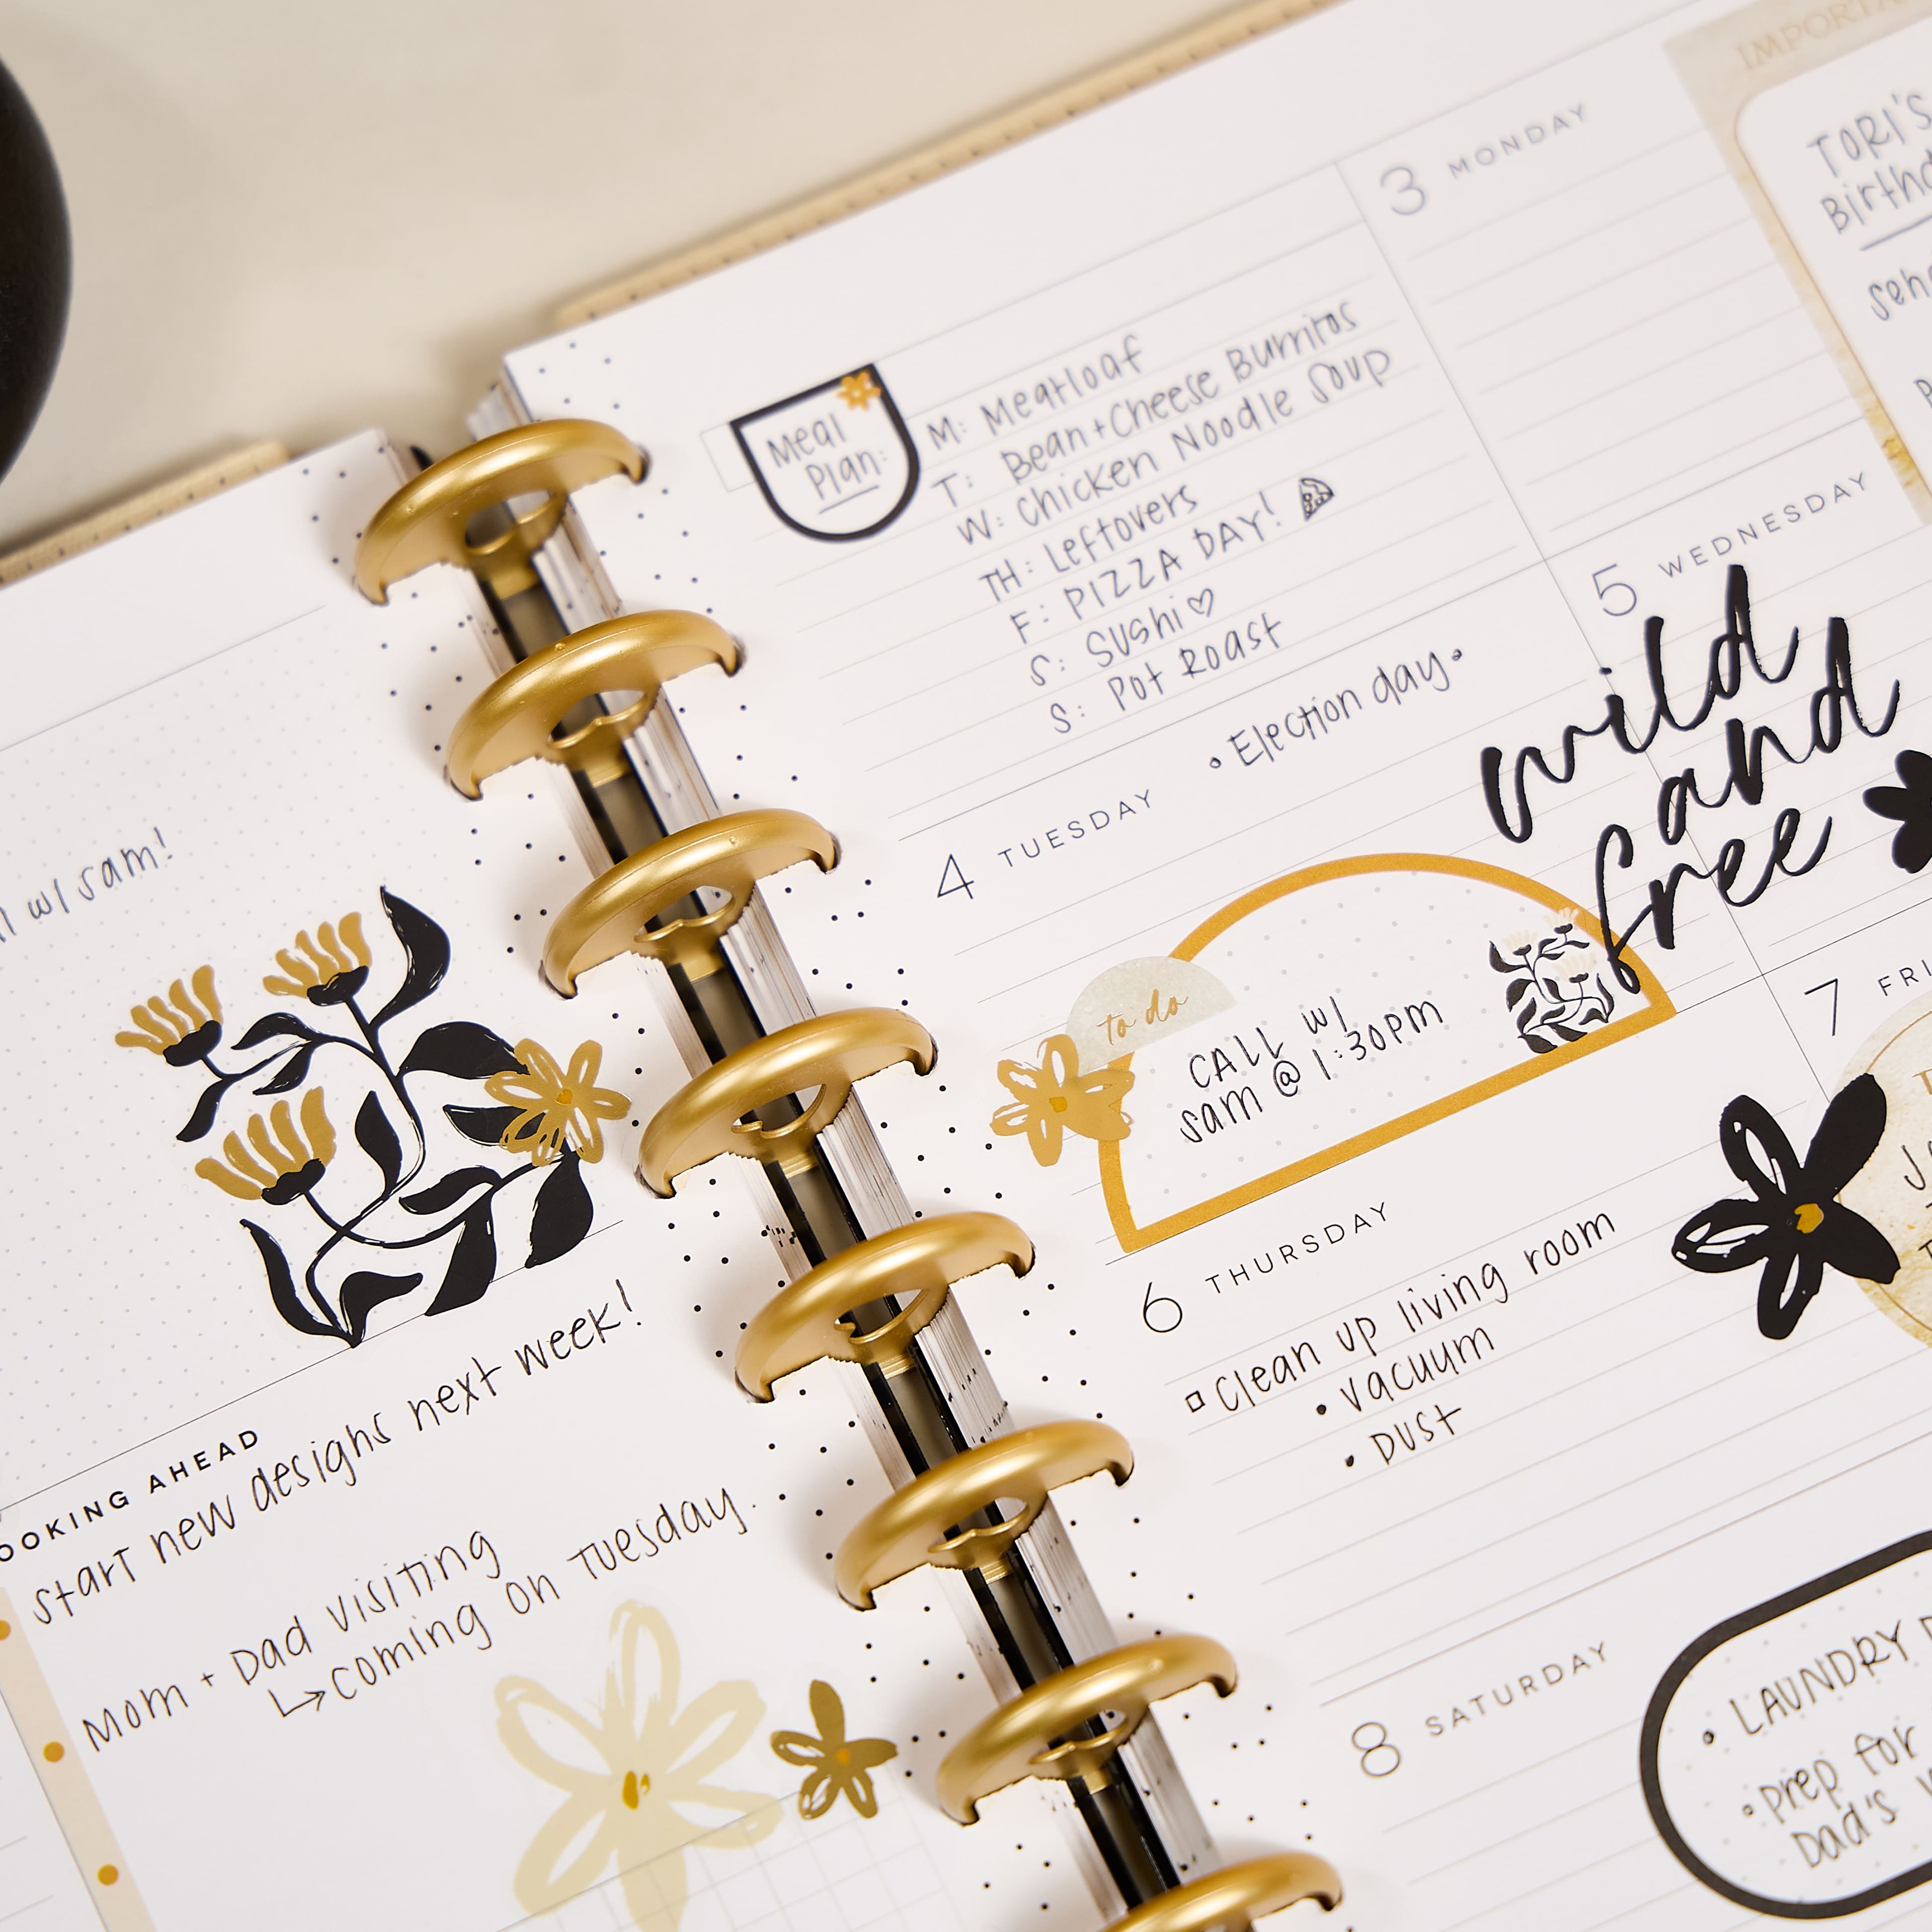 w/ sam!
OOKING AHEAD
start new designs next week!
Mom + Dad visiting
↳coming on Tuesday.
Meal
Plan:
M: Meatloaf
T: Bean+Cheese Burritos
W: Chicken Noodle Soup
TH: Leftovers
F: PIZZA DAY!
S: Sushi♡
S: Pot Roast
3 MONDAY
IMPORTA
TORI'S
Birthd
send
4 TUESDAY
• Election day •
to do
CALL w/
sam @ 1:30pm
5 WEDNESDAY
wild
and
free
6 THURSDAY
□ Clean up living room
• vacuum
• DUST
7 FRI
8 SATURDAY
• LAUNDRY
• prep for
Dad's